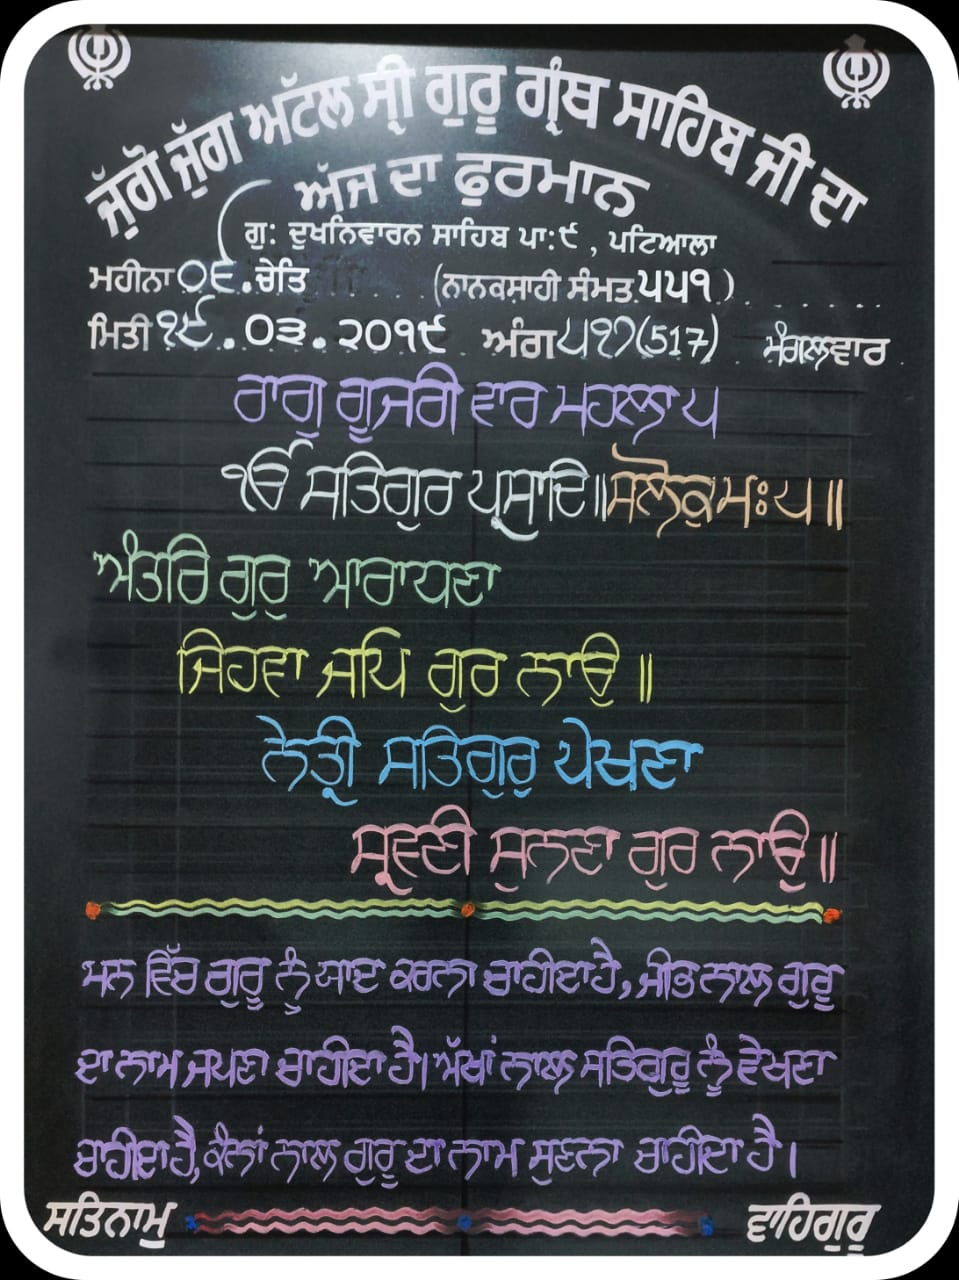 ਜੁੱਗੋ ਜੁੱਗ ਅਟੱਲ ਸ੍ਰੀ ਗੁਰੂ ਗ੍ਰੰਥ ਸਾਹਿਬ ਜੀ ਦਾ
ਅੱਜ ਦਾ ਫੁਰਮਾਨ
ਗੁ: ਦੁਖਨਿਵਾਰਨ ਸਾਹਿਬ ਪਾ:੯ , ਪਟਿਆਲਾ
ਮਹੀਨਾ ੦੬.ਚੇਤਿ (ਨਾਨਕਸ਼ਾਹੀ ਸੰਮਤ.੫੫੧)
ਮਿਤੀ ੧੯.੦੩.੨੦੧੯ ਅੰਗ ੫੧੭(517) ਮੰਗਲਵਾਰ
ਰਾਗੁ ਗੂਜਰੀ ਵਾਰ ਮਹਲਾ ੫
ੴ ਸਤਿਗੁਰ ਪ੍ਰਸਾਦਿ॥ਸਲੋਕੁਮਃ੫॥
ਅੰਤਰਿ ਗੁਰੁ ਆਰਾਧਣਾ
ਜਿਹਵਾ ਜਪਿ ਗੁਰ ਨਾਉ॥
ਨੇਤ੍ਰੀ ਸਤਿਗੁਰੁ ਪੇਖਣਾ
ਸ੍ਰਵਣੀ ਸੁਨਣਾ ਗੁਰ ਨਾਉ॥
ਮਨ ਵਿੱਚ ਗੁਰੂ ਨੂੰ ਯਾਦ ਕਰਨਾ ਚਾਹੀਦਾ ਹੈ, ਜੀਭ ਨਾਲ ਗੁਰੂ
ਦਾ ਨਾਮ ਜਪਣਾ ਚਾਹੀਦਾ ਹੈ। ਅੱਖਾਂ ਨਾਲ ਸਤਿਗੁਰੂ ਨੂੰ ਵੇਖਣਾ
ਚਾਹੀਦਾ ਹੈ, ਕੰਨਾਂ ਨਾਲ ਗੁਰੂ ਦਾ ਨਾਮ ਸੁਣਨਾ ਚਾਹੀਦਾ ਹੈ।
ਸਤਿਨਾਮੁ ਵਾਹਿਗੁਰੂ